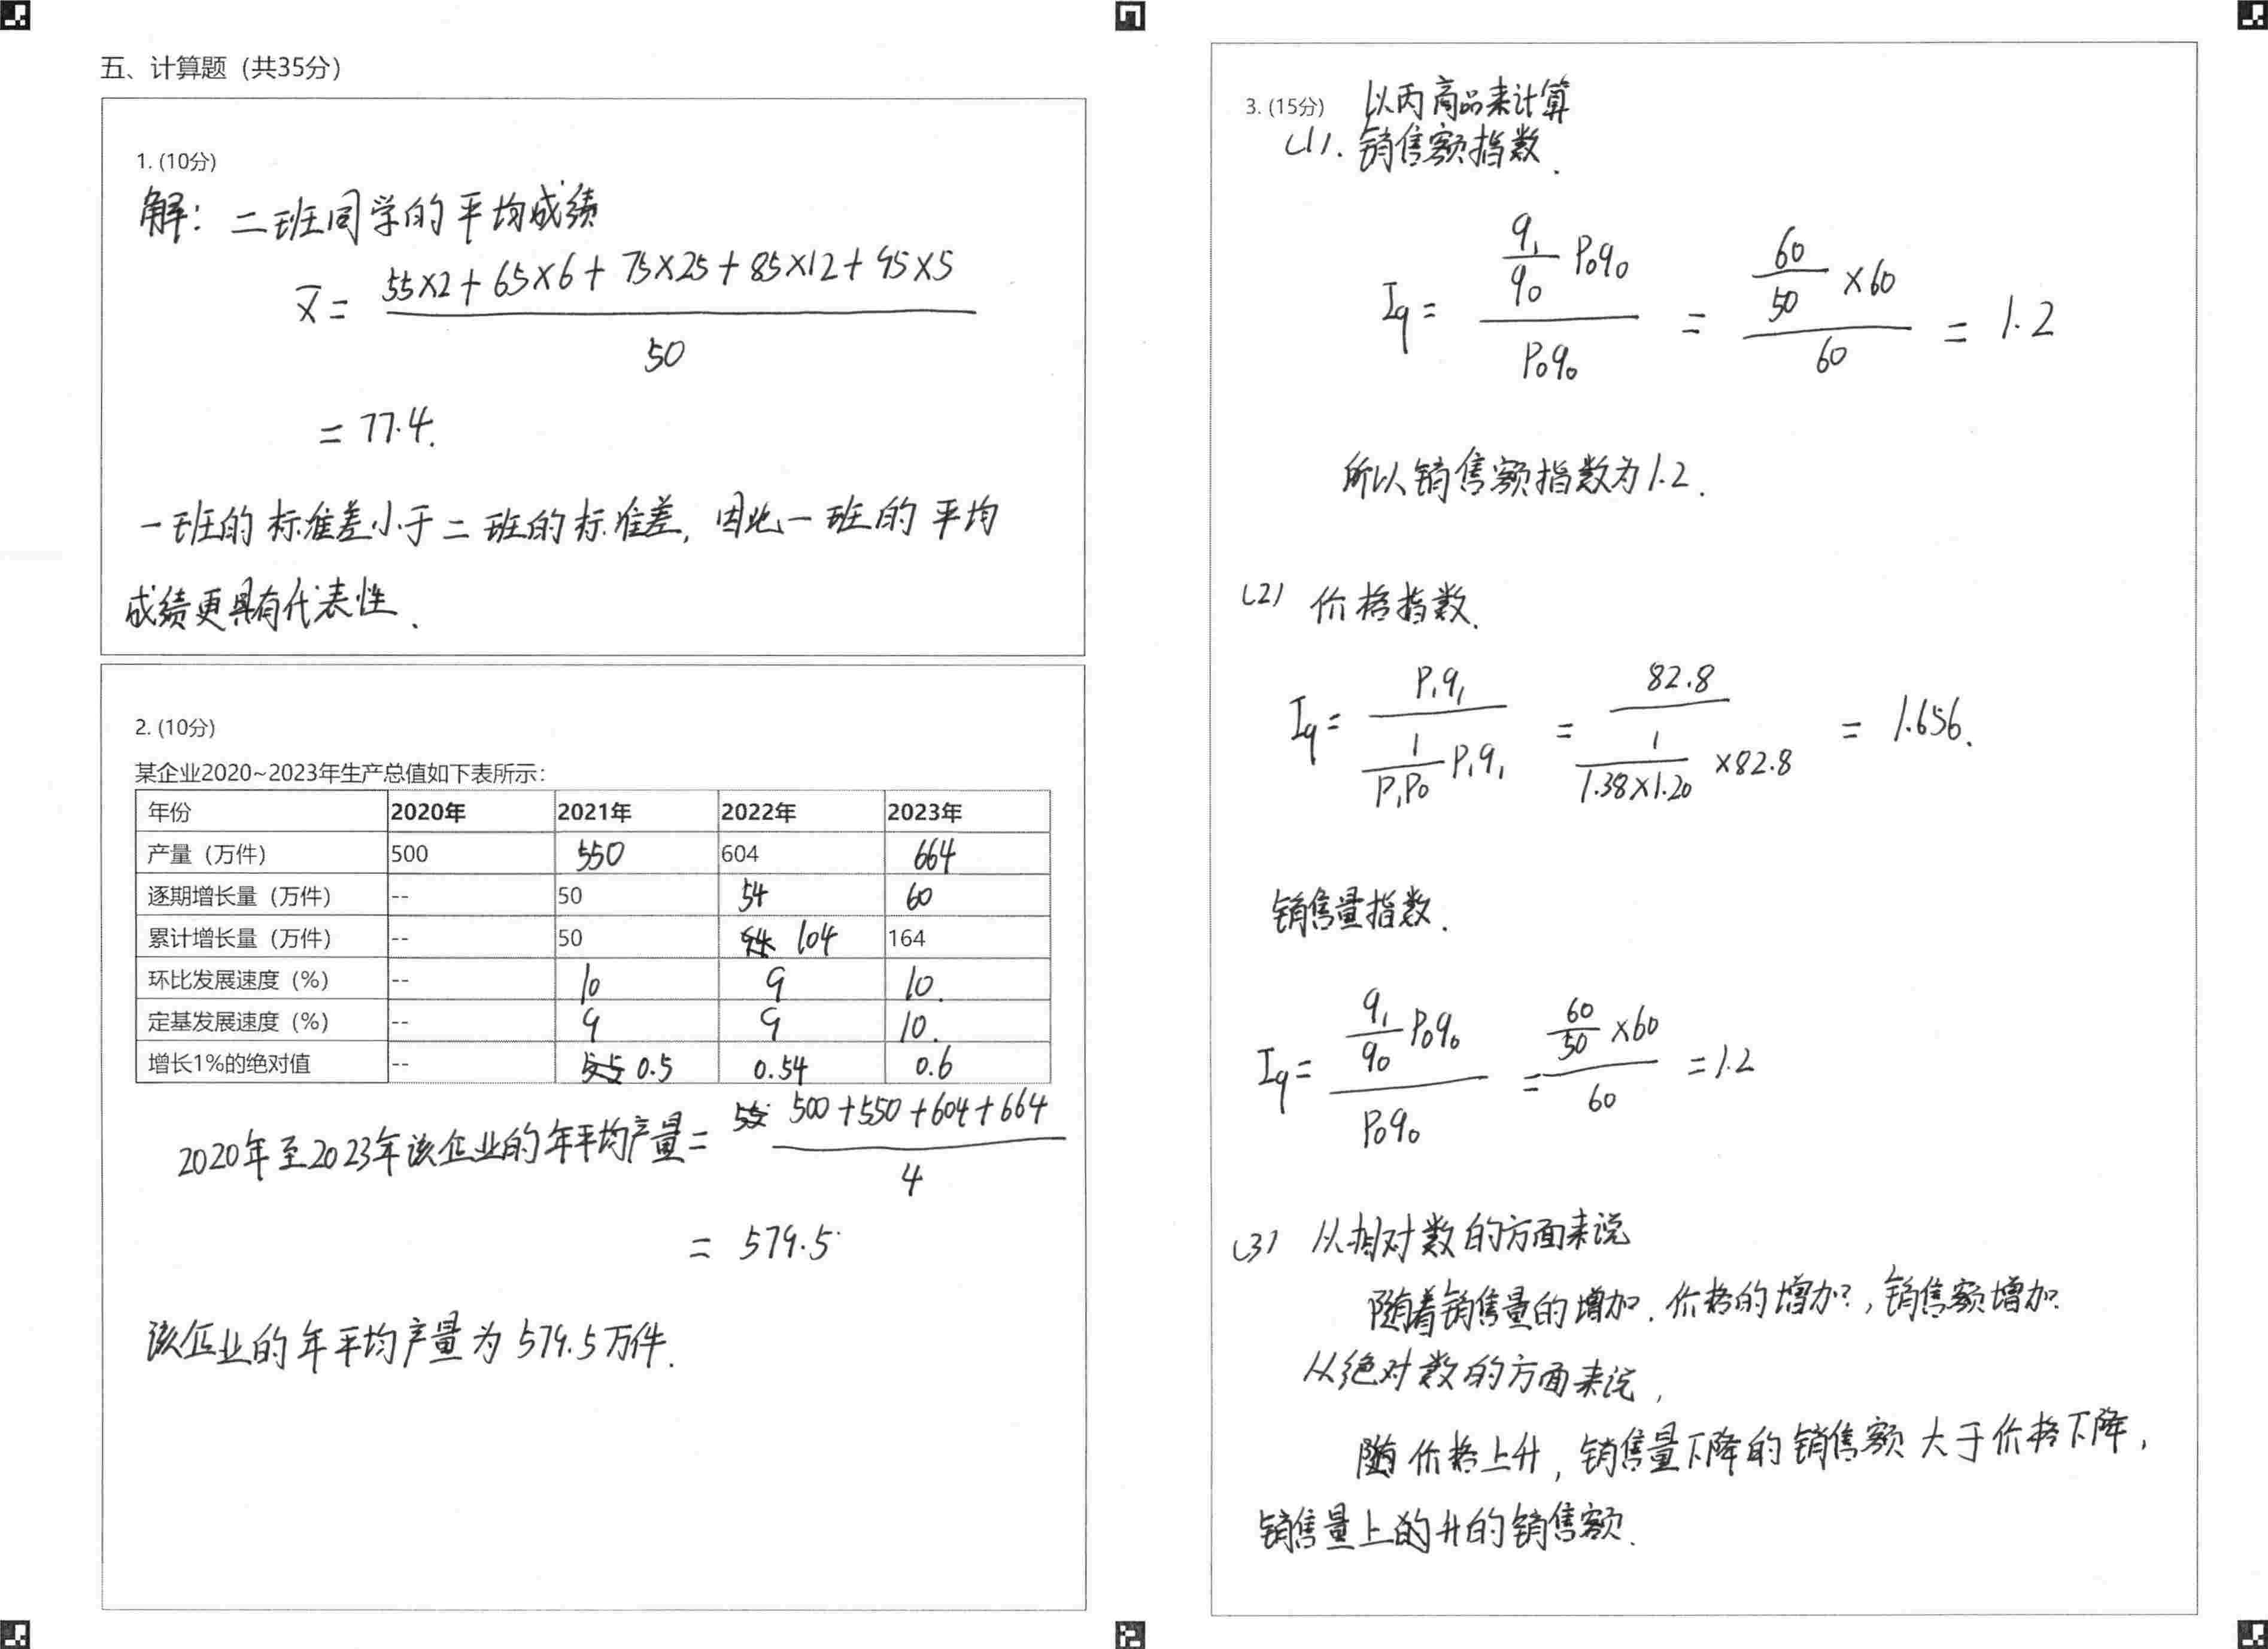 五、计算题（共35分）
1. (10分)
解：二班同学的平均成绩
x̄ = (55×2+65×6+75×25+85×12+95×5) / 50
= 77.4.
一班的标准差小于二班的标准差，因此一班的平均
成绩更具有代表性.
2. (10分)
某企业2020~2023年生产总值如下表所示：
年份 2020年 2021年 2022年 2023年
产量（万件） 500 550 604 664
逐期增长量（万件） -- 50 54 60
累计增长量（万件） -- 50 104 164
环比发展速度（%） -- 10 9 10.
定基发展速度（%） -- 9 9 10.
增长1%的绝对值 -- 0.5 0.54 0.6
2020年至2023年该企业的年平均产量= (500+550+604+664) / 4
= 579.5
该企业的年平均产量为579.5万件.
3. (15分) 以丙商品来计算
(1). 销售额指数.
Iq = (q₁/q₀ P₀q₀) / (P₀q₀) = (60/50 ×60) / 60 = 1.2
所以销售额指数为1.2.
(2) 价格指数.
Iq = P₁q₁ / (1/(P₁P₀) P₁q₁) = 82.8 / (1/(1.38×1.20) ×82.8) = 1.656.
销售量指数.
Iq = (q₁/q₀ P₀q₀) / (P₀q₀) = (60/50 ×60) / 60 = 1.2
(3) 从相对数的方面来说
随着销售量的增加.价格的增加，销售额增加.
从绝对数的方面来说，
随价格上升，销售量下降的销售额大于价格下降，
销售量上的升的销售额.